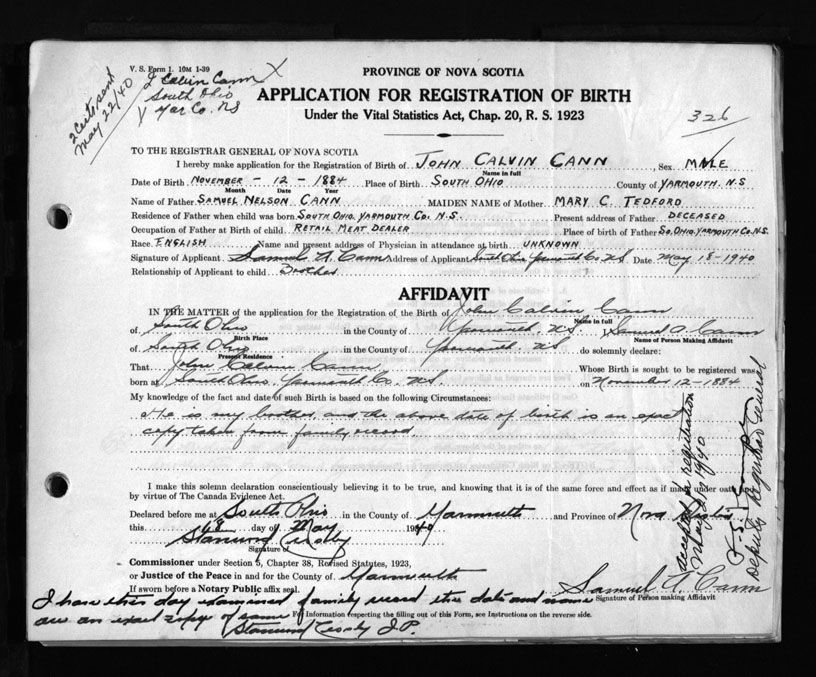 V. S. Form 1. 10M 1-39
2 Certs sent
May 22/40
J Calvin Cann X
South Ohio
Yar Co. NS
PROVINCE OF NOVA SCOTIA
APPLICATION FOR REGISTRATION OF BIRTH
Under the Vital Statistics Act, Chap. 20, R. S. 1923
326
TO THE REGISTRAR GENERAL OF NOVA SCOTIA
I hereby make application for the Registration of Birth of JOHN CALVIN CANN, Sex MALE
Name in full
Date of Birth NOVEMBER - 12 - 1884 Place of Birth SOUTH OHIO County of YARMOUTH. N.S
Month Date Year
Name of Father SAMUEL NELSON CANN MAIDEN NAME of Mother MARY C. TEDFORD
Residence of Father when child was born SOUTH OHIO. YARMOUTH CO. N.S. Present address of Father DECEASED
Occupation of Father at Birth of child RETAIL MEAT DEALER Place of birth of Father SO. OHIO. YARMOUTH CO. N.S.
Race ENGLISH Name and present address of Physician in attendance at birth UNKNOWN
Signature of Applicant Samuel A. Cann Address of Applicant South Ohio Yarmouth Co NS Date May 18-1940
Relationship of Applicant to child Brother
AFFIDAVIT
IN THE MATTER of the application for the Registration of the Birth of John Calvin Cann
Name in full
of South Ohio in the County of Yarmouth. NS I, Samuel A. Cann
Birth Place Name of Person Making Affidavit
of South Ohio in the County of Yarmouth. NS do solemnly declare:
Present Residence
That John Calvin Cann Whose Birth is sought to be registered was
born at South Ohio. Yarmouth Co. NS. on November 12-1884
My knowledge of the fact and date of such Birth is based on the following Circumstances:
He is my brother and the above date of birth is an exact
copy taken from family record.
I make this solemn declaration conscientiously believing it to be true, and knowing that it is of the same force and effect as if made under oath
by virtue of The Canada Evidence Act.
Declared before me at South Ohio in the County of Yarmouth and Province of Nova Scotia
this 18 day of May 1940
Signature of
Commissioner under Section 5, Chapter 38, Revised Statutes, 1923,
or Justice of the Peace in and for the County of Yarmouth
If sworn before a Notary Public affix seal.
Samuel A. Cann
Signature of Person making Affidavit
I have this day examined family record this date and name
are an exact copy of same
For Information respecting the filling out of this Form, see Instructions on the reverse side.
J.P.
Accepted for registration
May 21, 1940
Deputy Registrar General